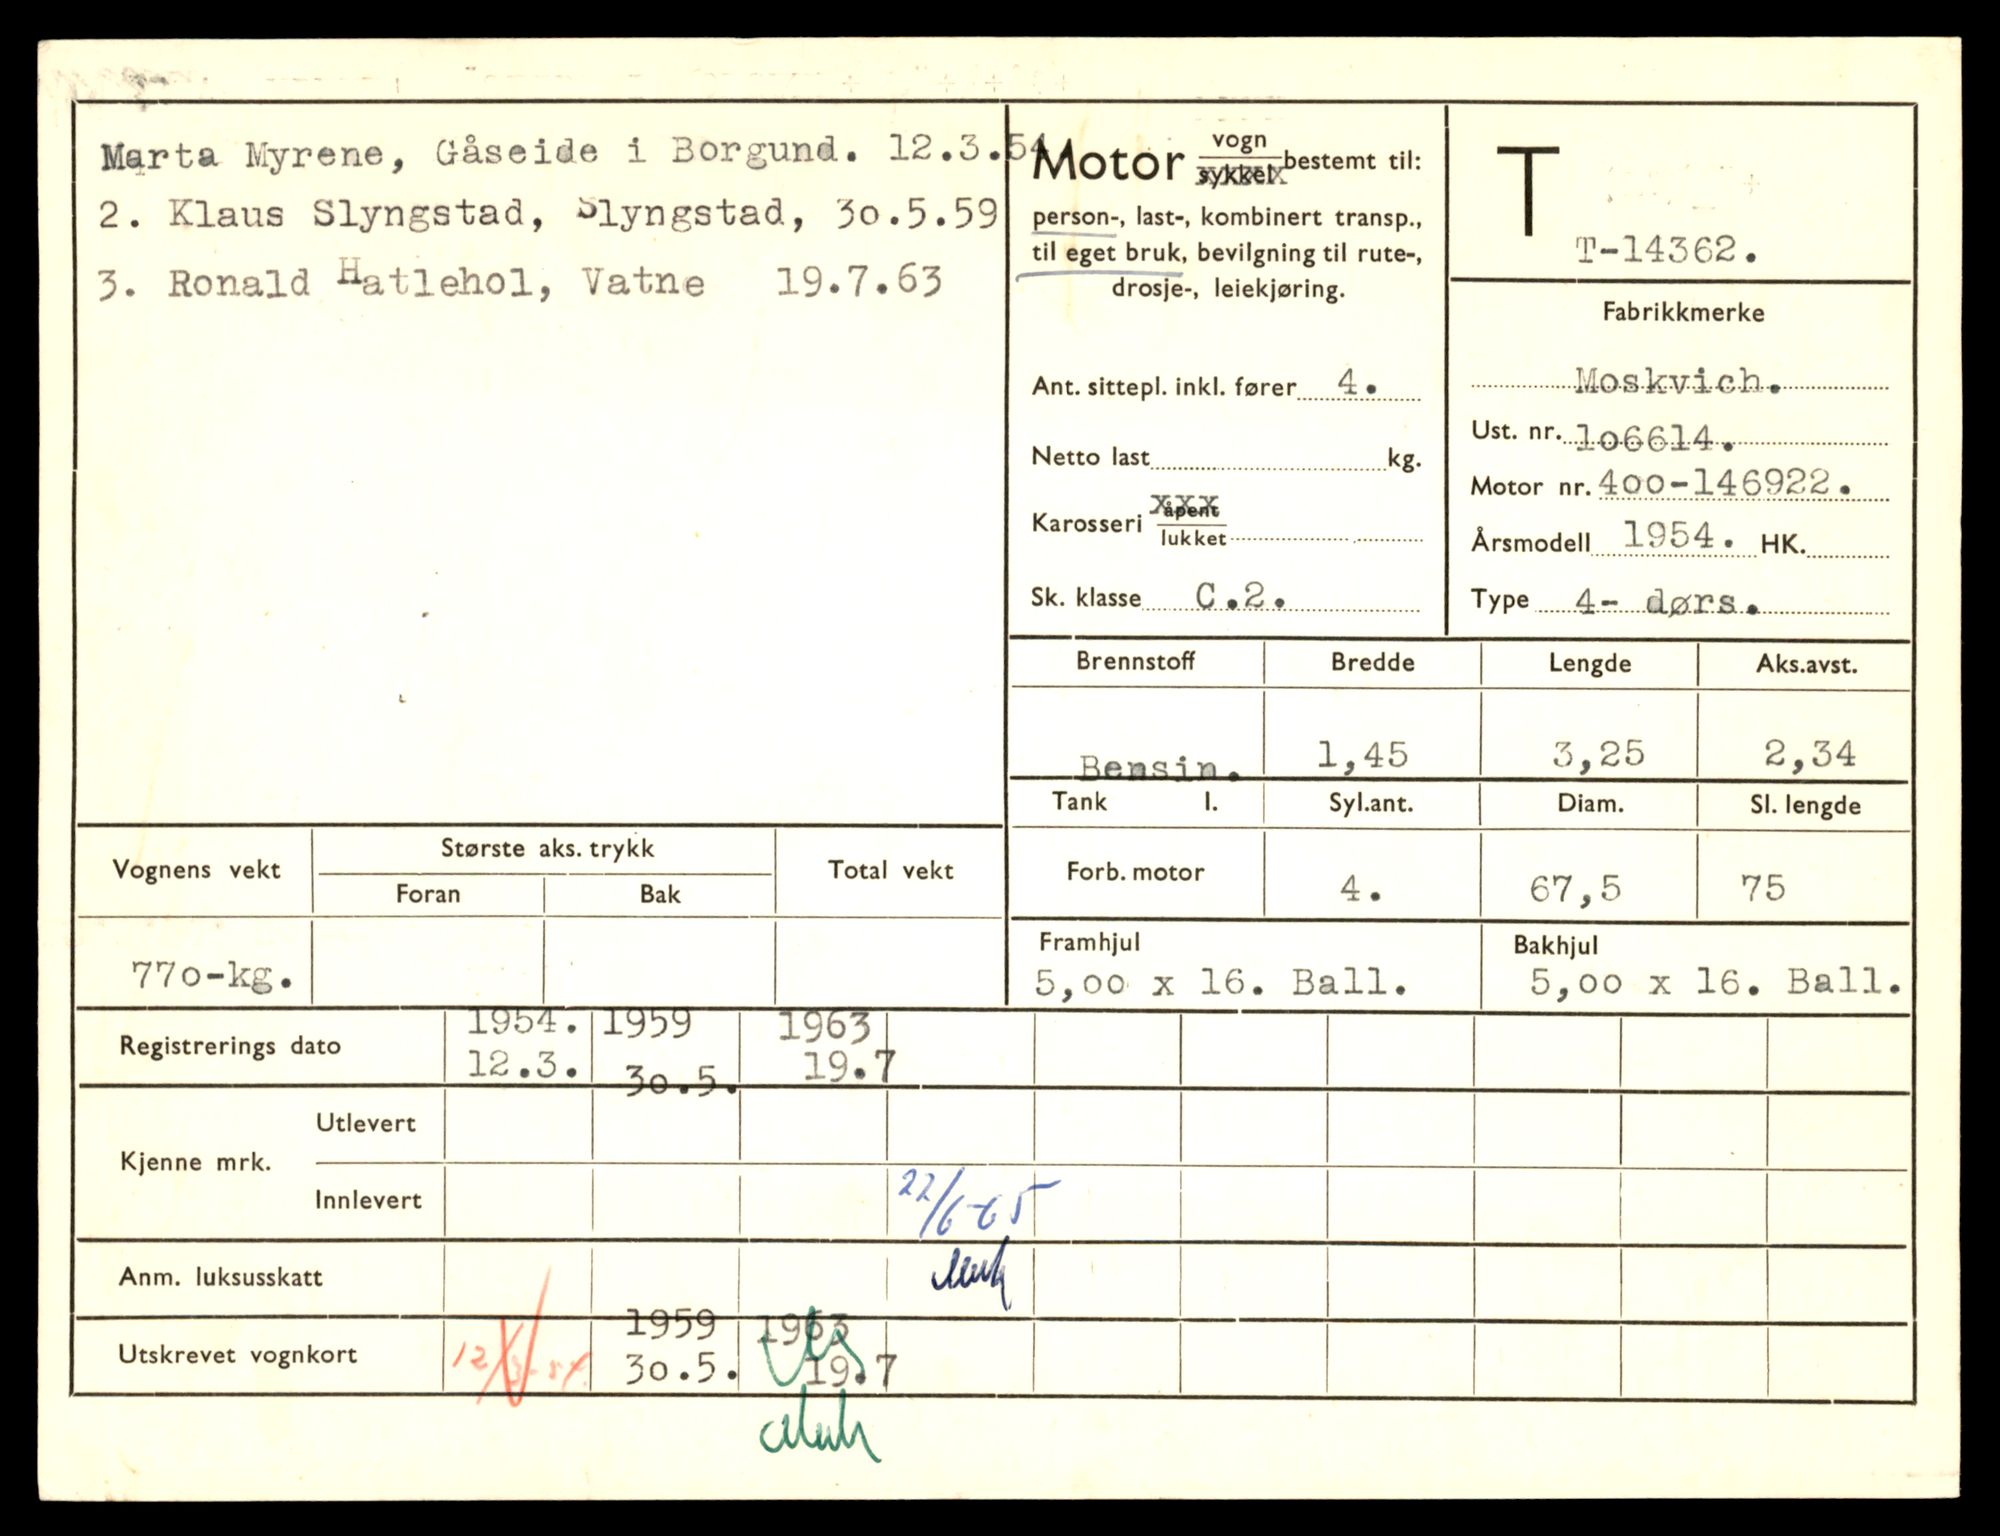 Marta Myrene, Gåseide i Borgund. 12.3.54.
2. Klaus Slyngstad, Slyngstad, 30.5.59
3. Ronald Hatlehol, Vatne 19.7.63
Motor vogn bestemt til:
sykkel
person-, last-, kombinert transp.,
til eget bruk, bevilgning til rute-,
drosje-, leiekjøring.
Ant. sittepl. inkl. fører 4.
Netto last kg.
Karosseri åpent
lukket
Sk. klasse C.2.
T
T-14362.
Fabrikkmerke
Moskvich.
Ust. nr. 106614.
Motor nr. 400-146922.
Årsmodell 1954. HK.
Type 4- dørs.
Brennstoff Bredde Lengde Aks.avst.
Bensin. 1,45 3,25 2,34
Tank l. Syl.ant. Diam. Sl. lengde
Forb. motor 4. 67,5 75
Framhjul Bakhjul
5,00 x 16. Ball. 5,00 x 16. Ball.
Vognens vekt Største aks. trykk Total vekt
Foran Bak
770-kg.
Registrerings dato 1954. 1959 1963
12.3. 30.5. 19.7
Kjenne mrk. Utlevert
Innlevert 22/6-65
Anm. luksusskatt
Utskrevet vognkort 12/3-54. 1959 1963
30.5. 19.7